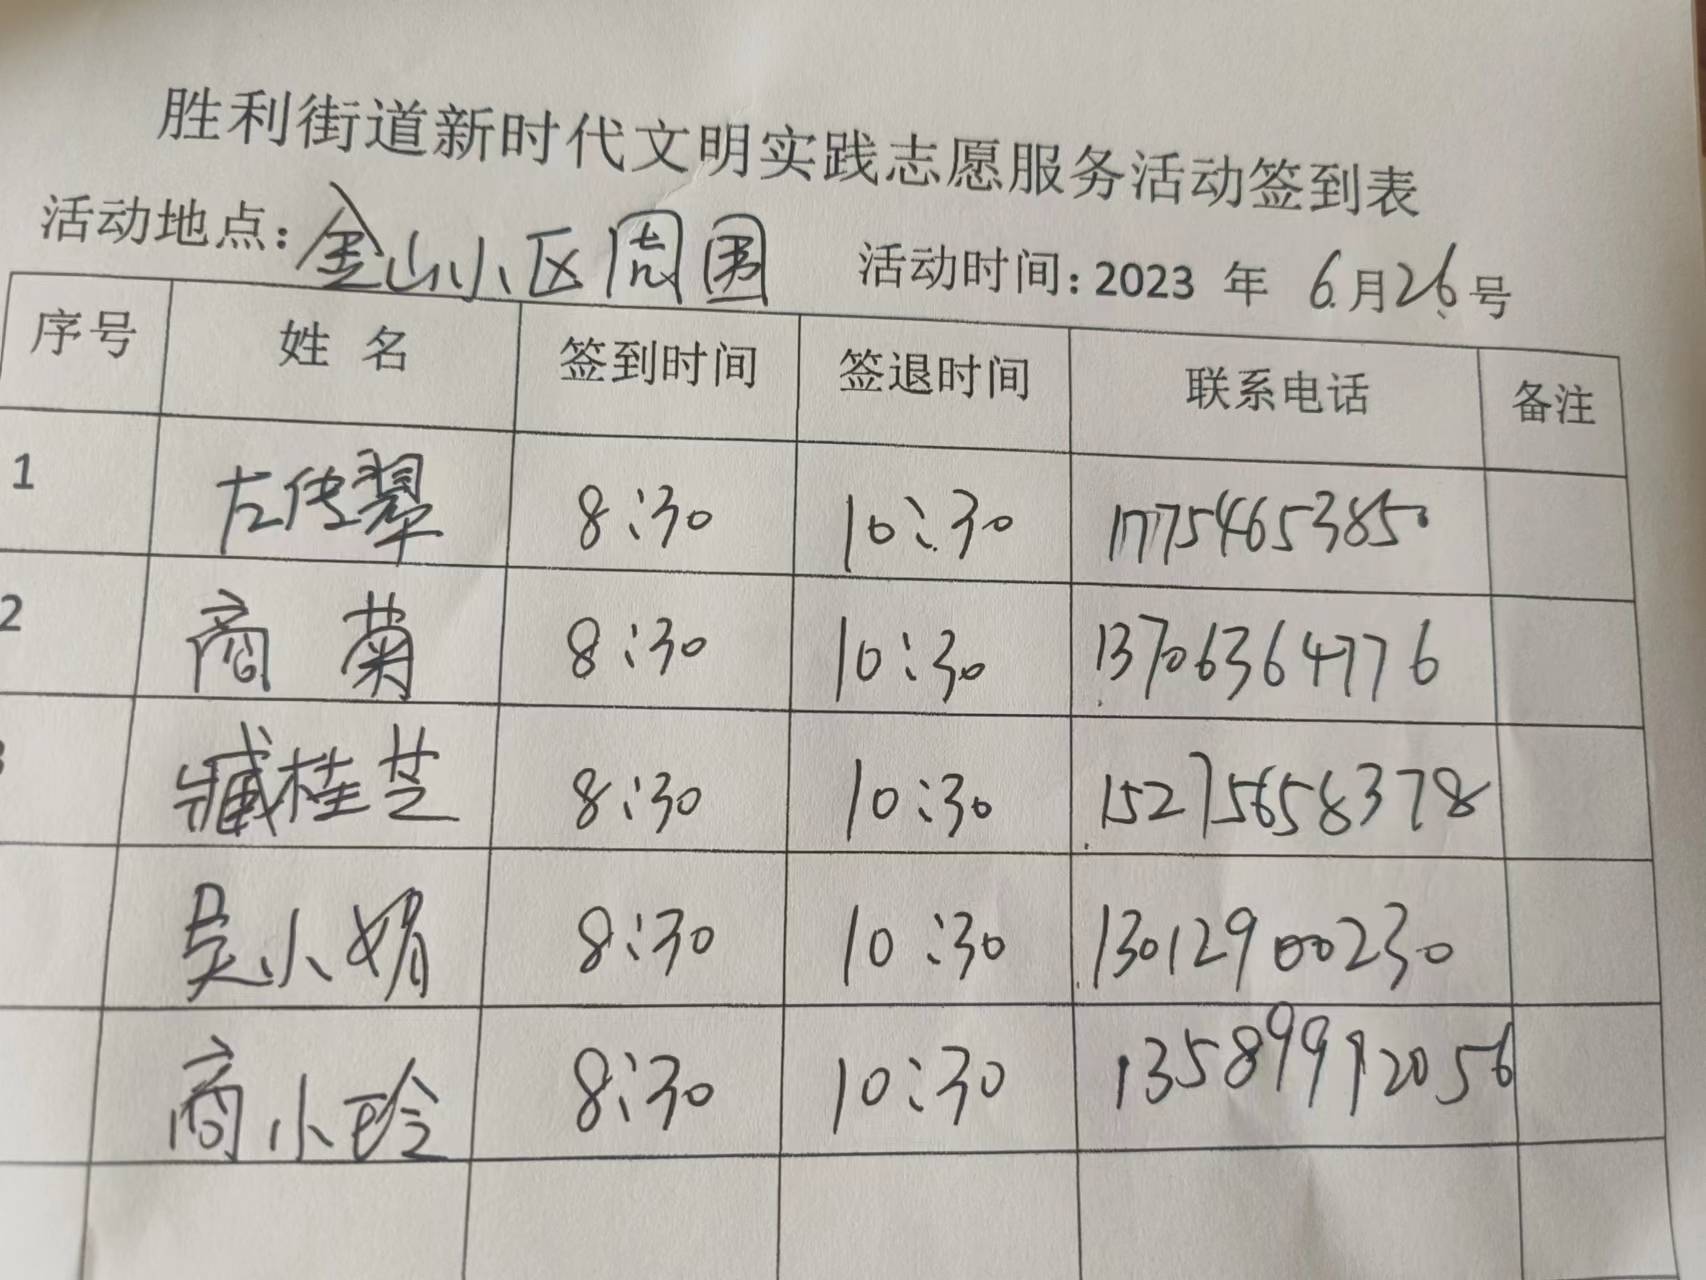 胜利街道新时代文明实践志愿服务活动签到表
活动地点: 金山小区周围 活动时间: 2023 年 6月26号
序号 姓名 签到时间 签退时间 联系电话 备注
1 左传翠 8:30 10:30 17754653850
2 商菊 8:30 10:30 13706364776
3 臧桂芝 8:30 10:30 15275658378
吴小娟 8:30 10:30 13012900230
商小玲 8:30 10:30 13589992056